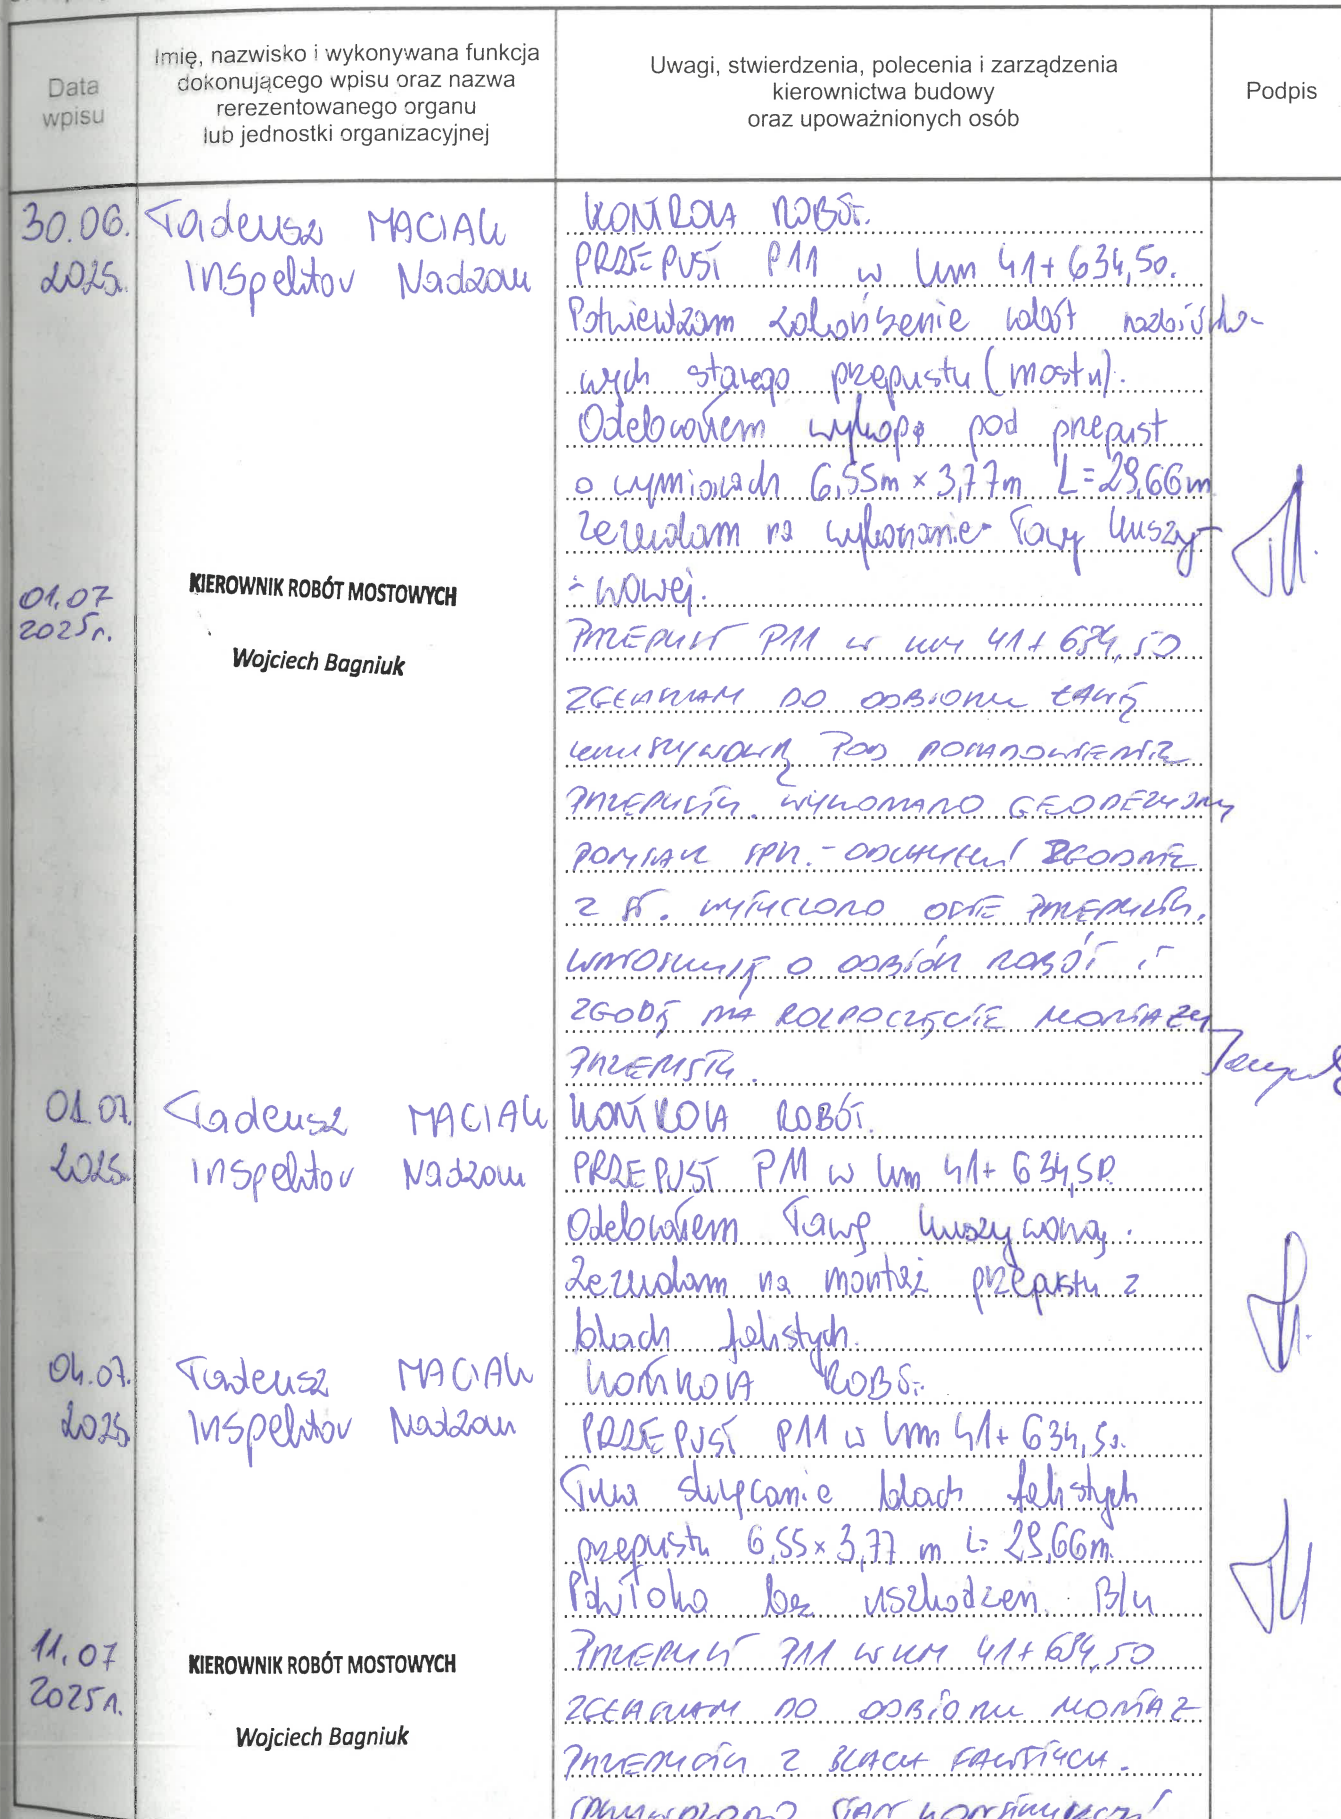 Data
wpisu
Imię, nazwisko i wykonywana funkcja
dokonującego wpisu oraz nazwa
rerezentowanego organu
lub jednostki organizacyjnej
Uwagi, stwierdzenia, polecenia i zarządzenia
kierownictwa budowy
oraz upoważnionych osób
Podpis
30.06.
2025.
Tadeusz MACIAK
Inspektor Nadzoru
KONTROLA ROBÓT.
PRZEPUST P11 w km 41+634,50.
Potwierdzam zakończenie robót rozbiórko-
wych starego przepustu (mostu).
Odebrałem wykop pod przepust
o wymiarach 6,55m × 3,77m L=29,66m
Zezwalam na wykonanie ławy kruszy-
-wowej.
01.07
2025r.
KIEROWNIK ROBÓT MOSTOWYCH
Wojciech Bagniuk
PRZEPUST P11 w km 41+634,50
ZGŁASZAM DO ODBIORU ŁAWĘ
KRUSZYWOWĄ POD POSADOWIENIE
PRZEPUSTU. WYKONANO GEODEZYJNY
POMIAR SPR. - ODCHYŁKI ZGODNIE
Z ST. WYTYCZONO OSIE PRZEPUSTU.
WNIOSKUJĘ O ODBIÓR ROBÓT I
ZGODĘ NA ROZPOCZĘCIE MONTAŻU
PRZEPUSTU.
01.07.
2025.
Tadeusz MACIAK
Inspektor Nadzoru
KONTROLA ROBÓT.
PRZEPUST P11 w km 41+634,50.
Odebrałem ławę kruszywową.
Zezwalam na montaż przepustu z
blach falistych.
04.07.
2025
Tadeusz MACIAK
Inspektor Nadzoru
KONTROLA ROBÓT.
PRZEPUST P11 w km 41+634,50.
Trwa skręcanie blach falistych
przepustu 6,55×3,77 m L=29,66m.
Powłoka bez uszkodzeń. B/u
11.07
2025r.
KIEROWNIK ROBÓT MOSTOWYCH
Wojciech Bagniuk
PRZEPUST P11 W KM 41+634,50
ZGŁASZAM DO ODBIORU MONTAŻ
PRZEPUSTU Z BLACH FALISTYCH.
SPRAWDZONO STAN KONSTRUKCJI